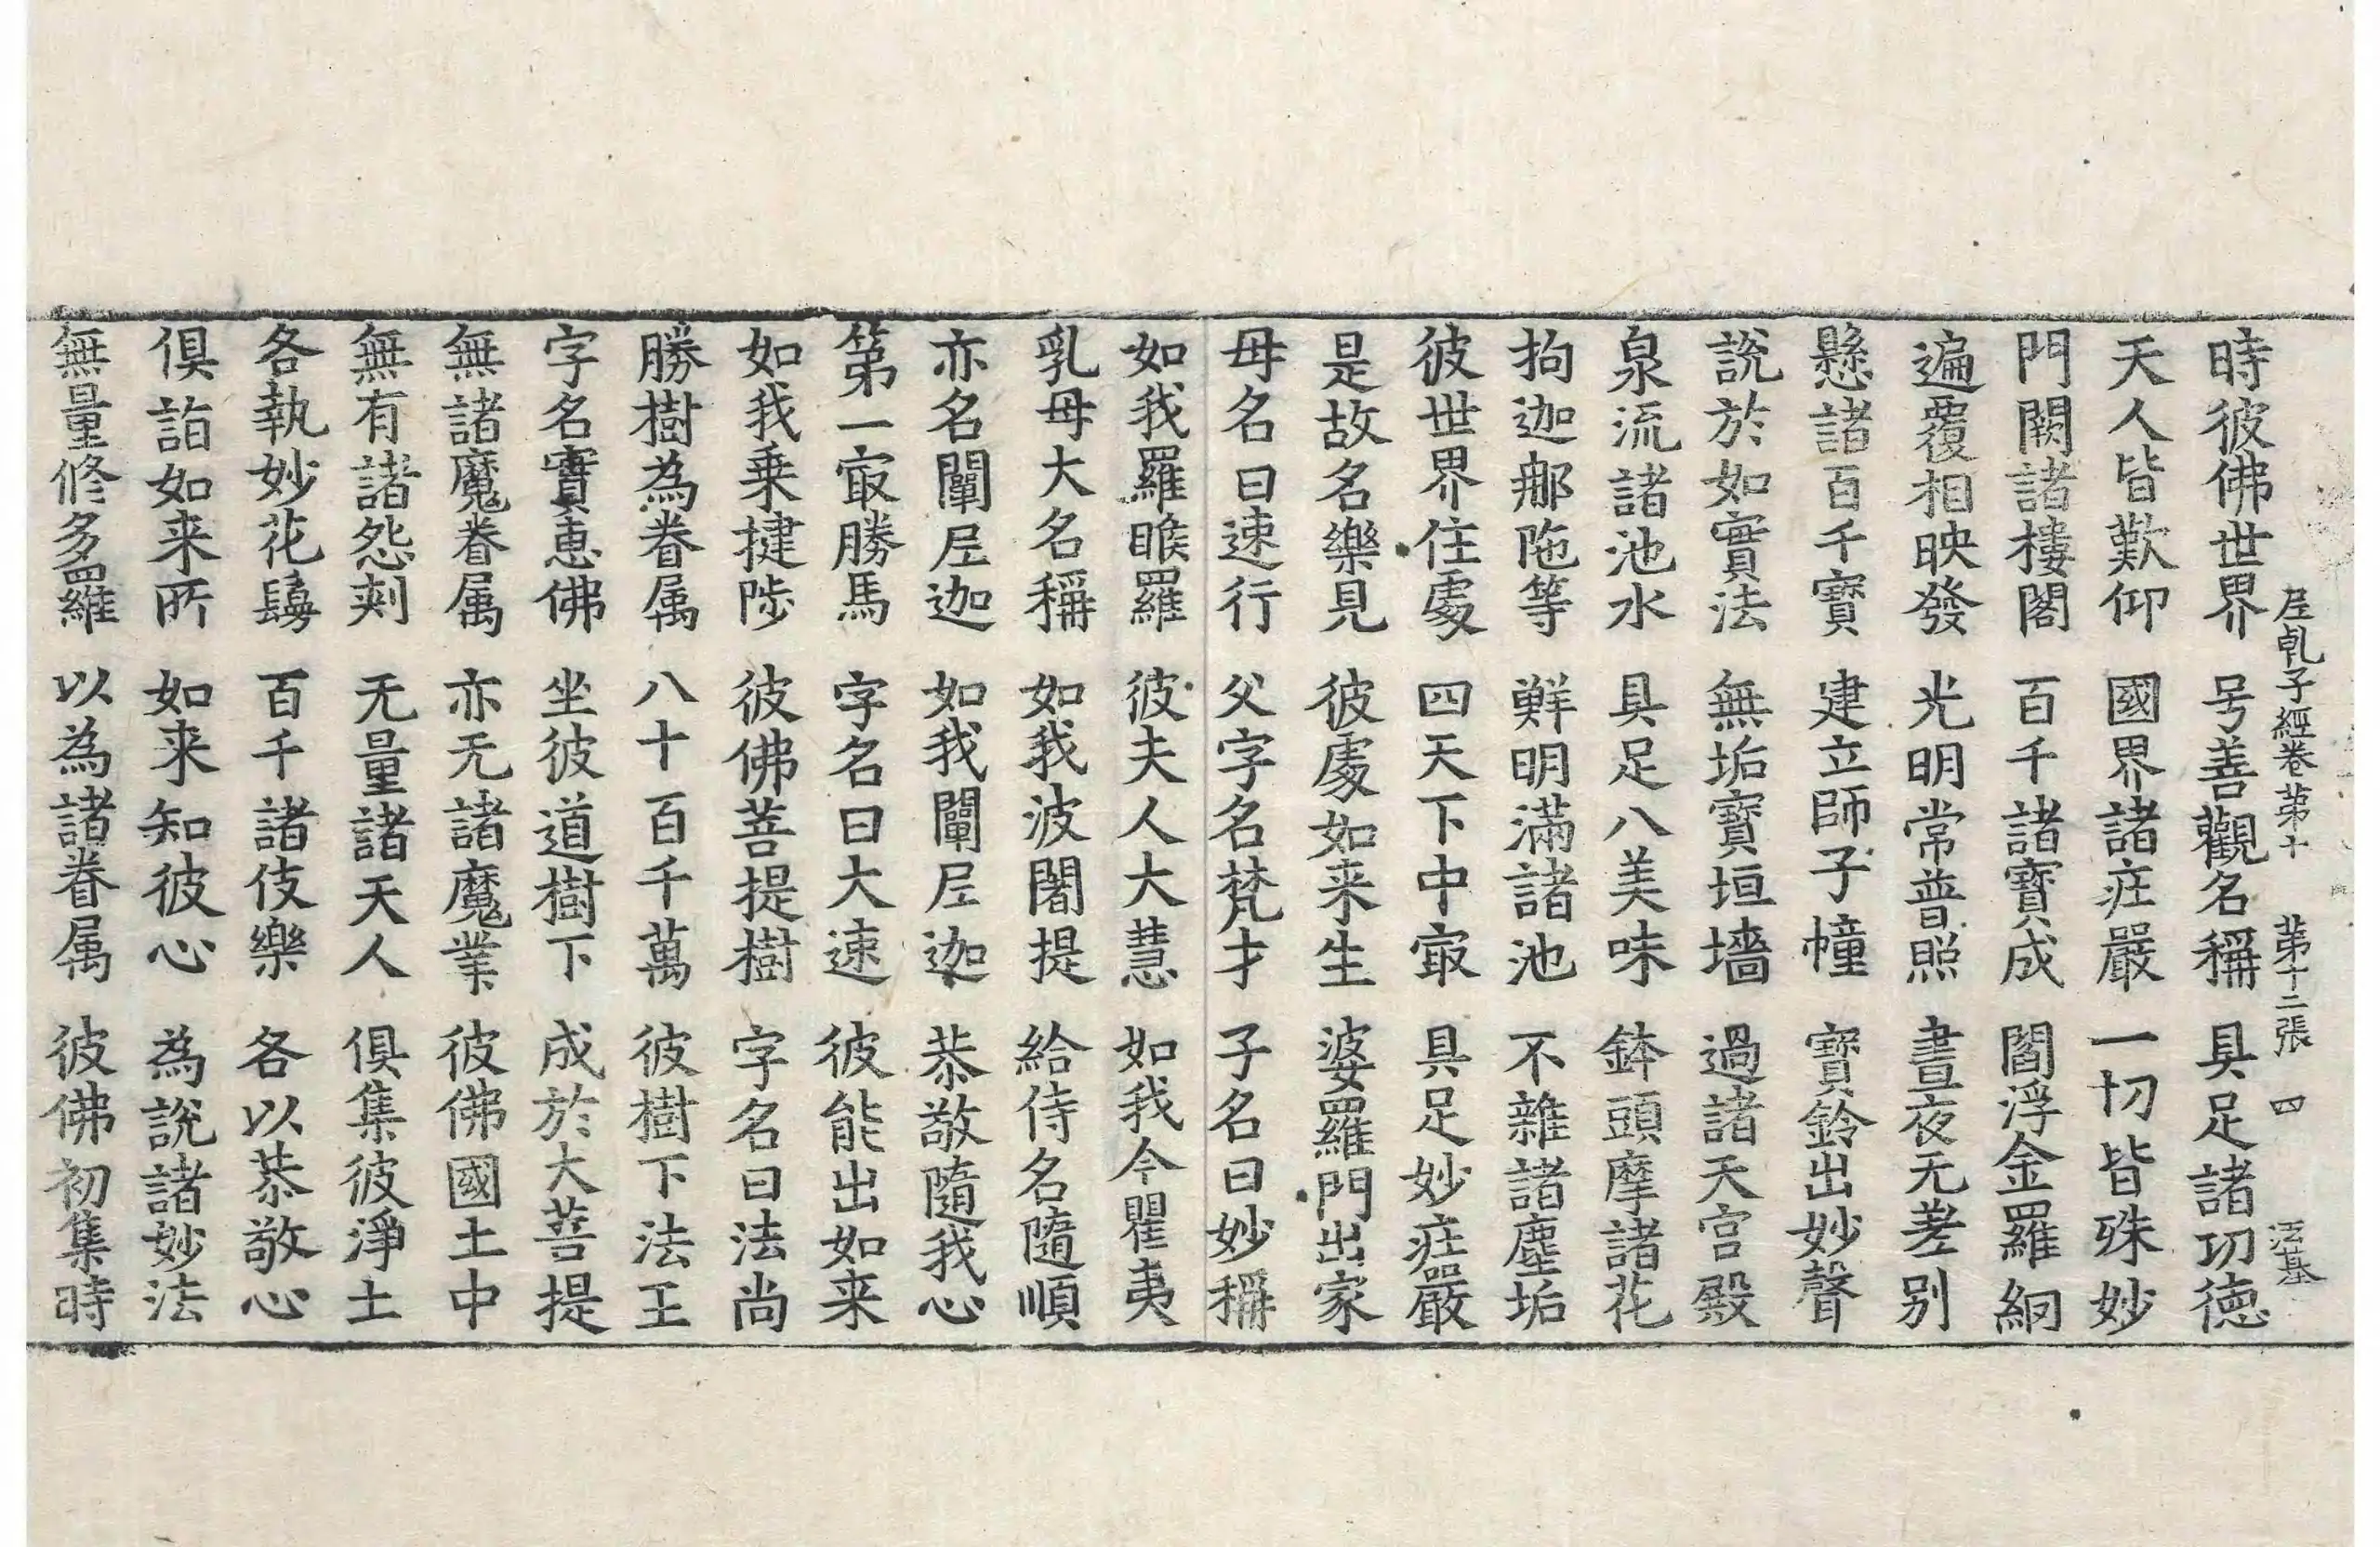 尼乹子經卷苐十　苐十二張　四　法基
時彼佛世界　号善觀名稱　具足諸功德
天人皆歎仰　國界諸㽵嚴　一切皆殊妙
門闕諸樓閣　百千諸寶成　閻浮金羅網
遍覆相映發　光明常普照　晝夜无差別
懸諸百千寶　建立師子幢　寶鈴出妙聲
說於如實法　無垢寶垣墻　過諸天宮殿
泉流諸池水　具足八美味　鉢頭摩諸花
拘迦郍陁等　鮮明滿諸池　不雜諸塵垢
彼世界住處　四天下中㝡　具足妙㽵嚴
是故名樂見　彼處如来生　婆羅門出家
母名曰速行　父字名梵才　子名曰妙稱
如我羅睺羅　彼夫人大慧　如我今瞿夷
乳母大名稱　如我波闍提　給侍名隨順
亦名闡尼迦　如我闡尼迦　恭敬隨我心
第一㝡勝馬　字名曰大速　彼能出如来
如我乗揵陟　彼佛菩提樹　字名曰法尚
勝樹為眷属　八十百千萬　彼樹下法王
字名實惠佛　坐彼道樹下　成於大菩提
無諸魔眷属　亦无諸魔業　彼佛國土中
無有諸怨刺　无量諸天人　俱集彼淨土
各執妙花鬘　百千諸伎樂　各以恭敬心
俱詣如来所　如来知彼心　為說諸妙法
無量修多羅　以為諸眷属　彼佛初集時